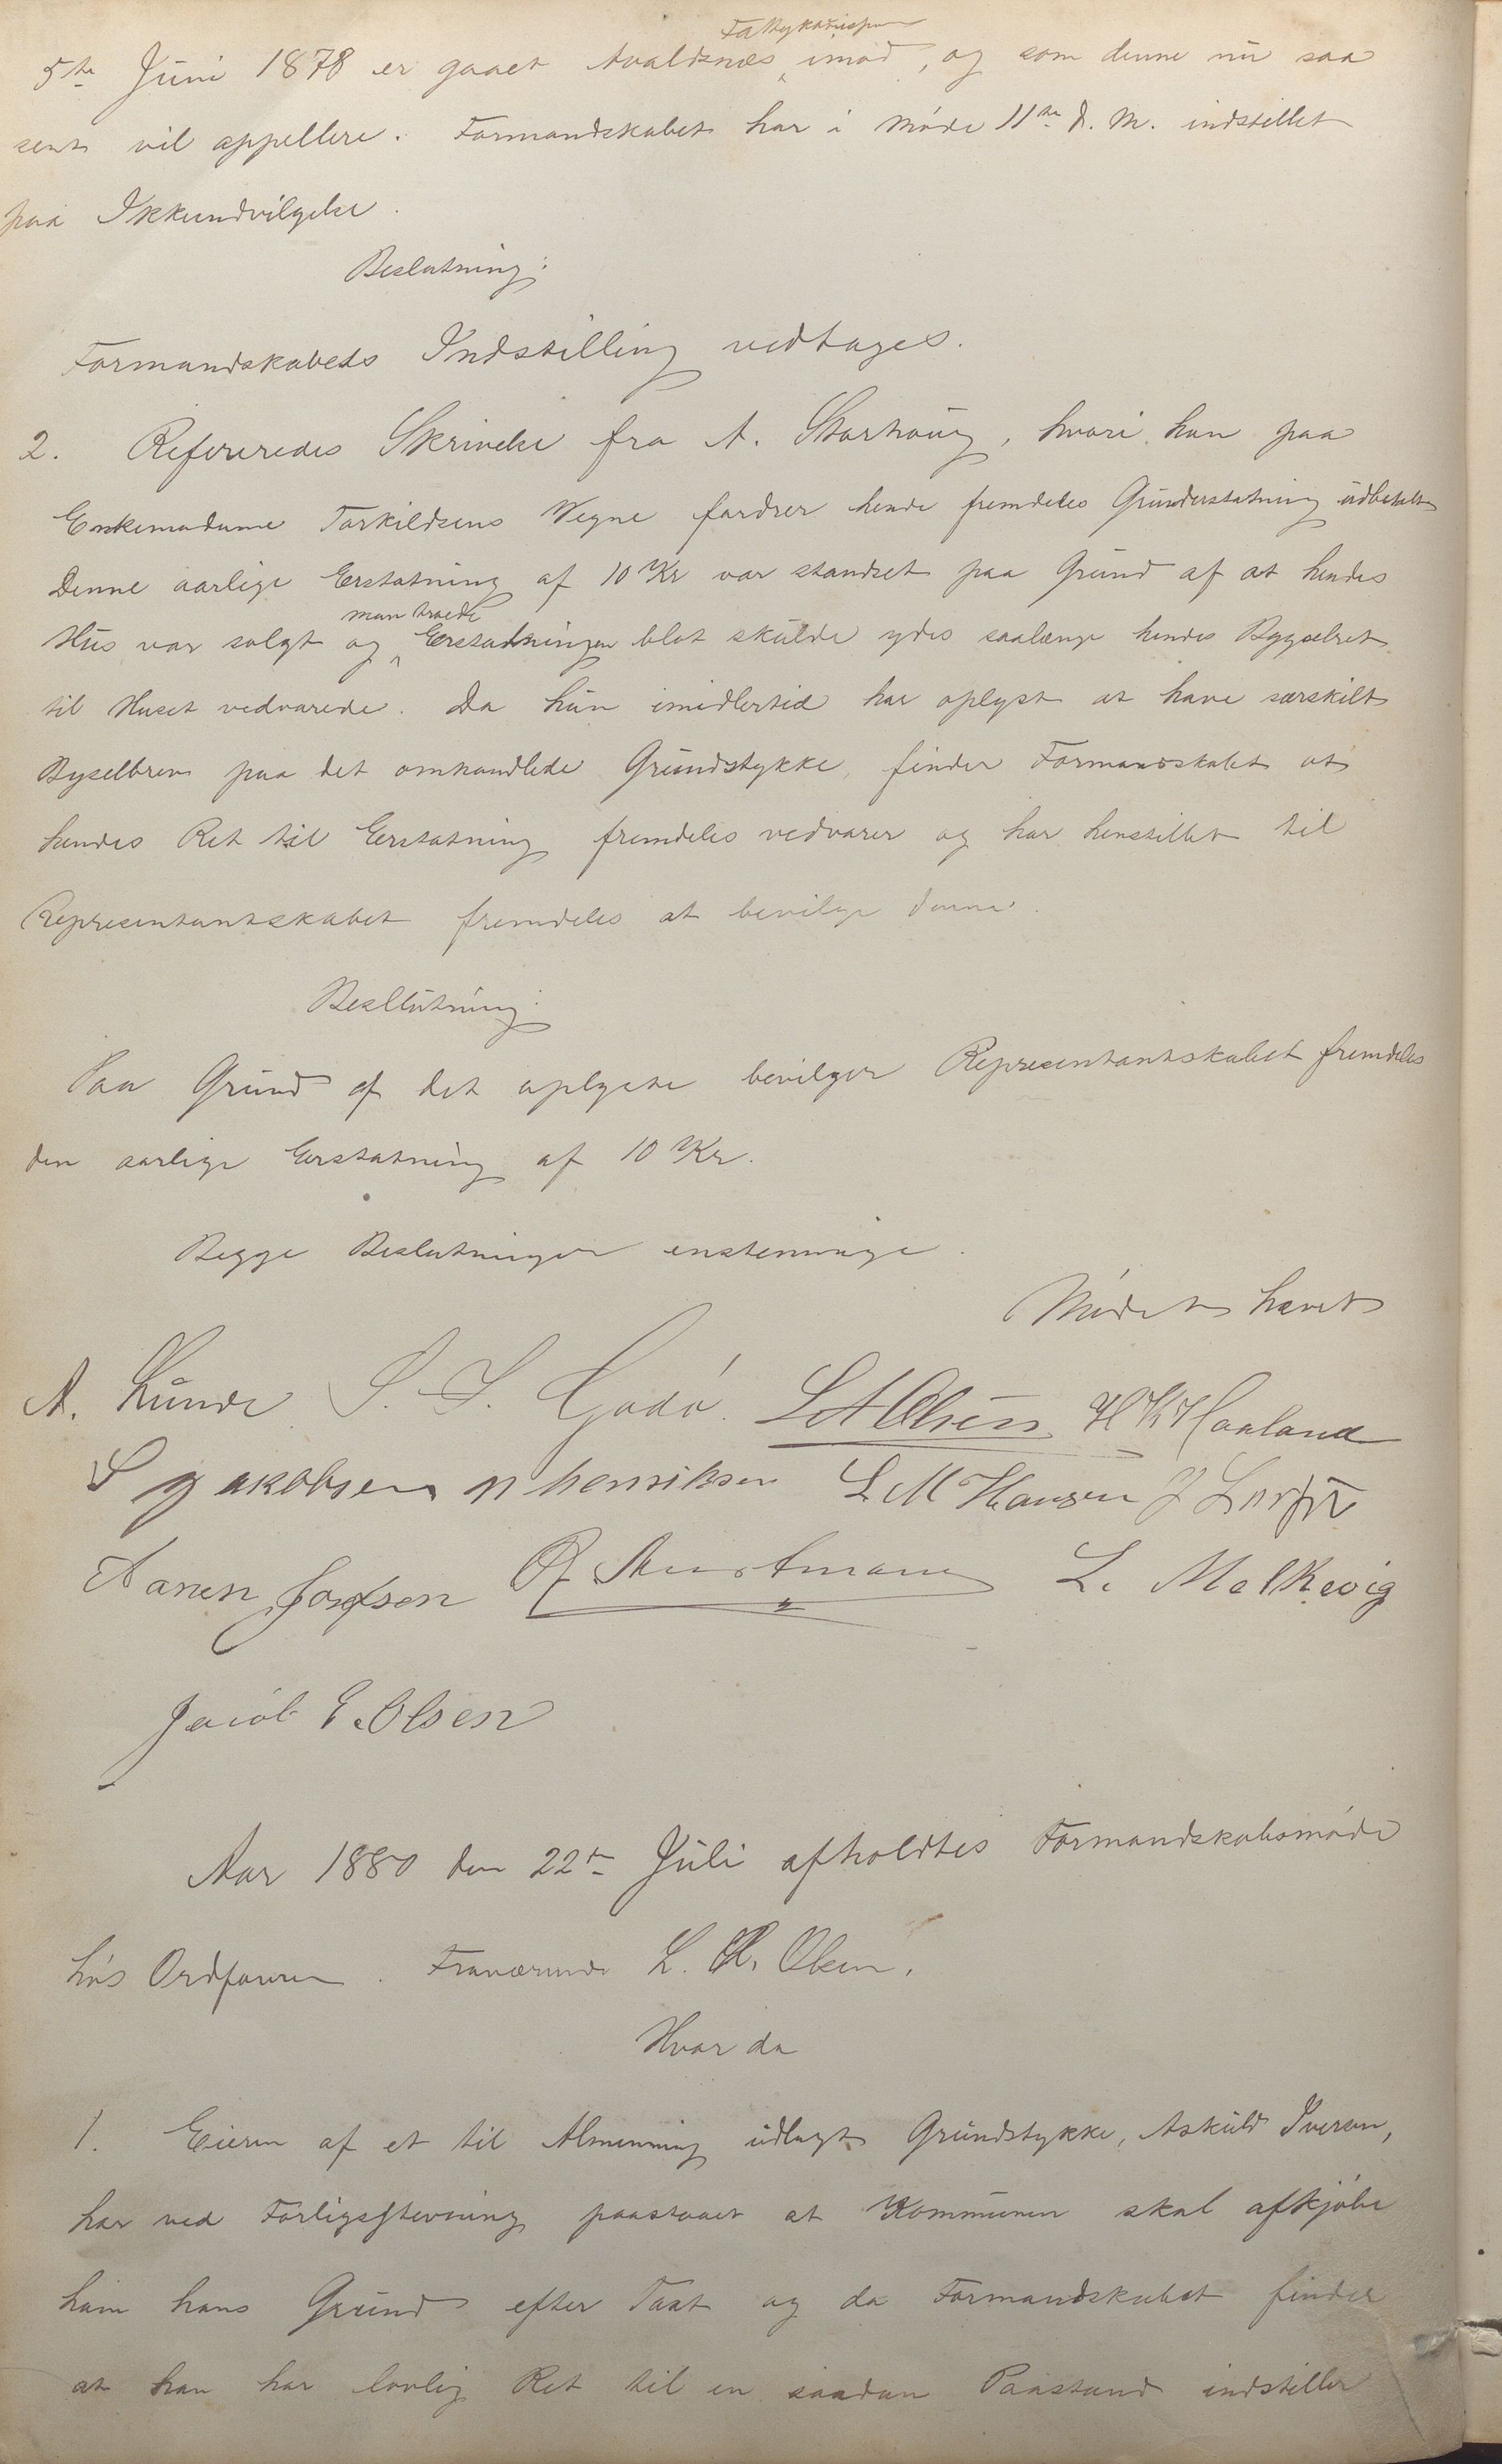 Fattigkomission
5te Juni 1878 er gaaet Avaldsnæs imod, og som denne nu saa
sent vil appellere. Formandskabet har i Møde 11te d. M. indstillet
paa Ikkeindvilgelse.
Beslutning:
Formandskabets Indstilling vedtages.
2. Refereredes Skrivelse fra A. Storhoug, hvori han paa
Enkemadame Torkildsens Vegne fordrer hende fremdeles Grunderstatning udbetalt
Denne aarlige Erstatning af 10 Kr var standset paa Grund af at hendes
man troede
Hus var solgt og Erstatningen blot skulde ydes saalænge hendes Bygselret
til Huset vedvarede. Da hun imidlertid har oplyst at have særskilt
Bygselbrev paa det omhandlede Grundstykke, finder Formandskabet at
hendes Ret til Erstatning fremdeles vedvarer og har henstillet til
Repræsentantskabet fremdeles at bevilge denne.
Beslutning:
Paa Grund af det oplyste bevilger Representantskabet fremdeles
den aarlige Erstatning af 10 Kr.
Begge Beslutninger enstemmige.
Mødet hævet
A. Lunde S. S. Godø. L A Olsen H K Haaland
S Jakobsen N Henriksen L M Hansen J
Aanen Josefsen L. Melkevig
Jacob E. Olsen
Aar 1880 den 22de Juli afholdtes Formandskabsmøde
hos Ordføreren. Fraværende L. A. Olsen.
Hvor da
1. Eieren af et til Almenning udlagt Grundstykke, Askuld Iversen,
har ved Forligsstevning paastaaet at Kommunen skal afkjøbe
ham hans Grund efter Taxt og da Formandskabet finder
at han har lovlig Ret til en saadan Paastand indstiller